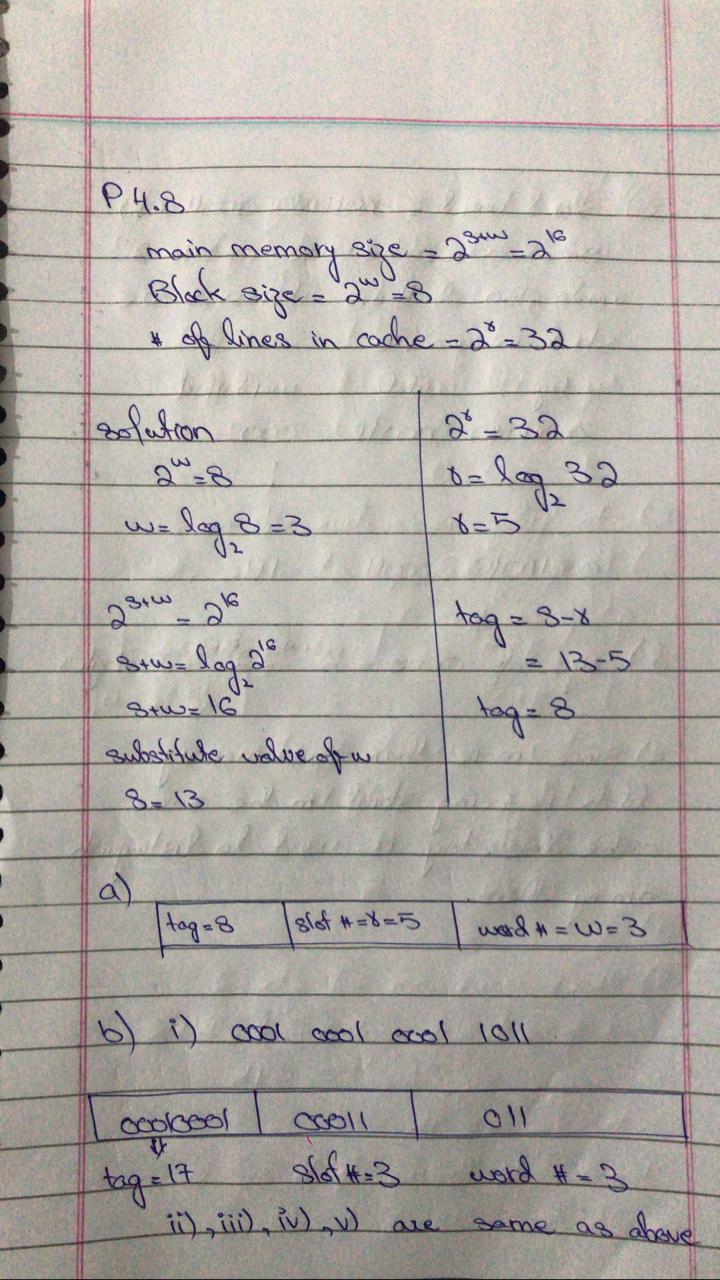 P 4.8
main memory size = 2^s+w = 2^16
Block size = 2^w = 8
# of lines in cache = 2^r = 32
solution
2^w = 8
w = log₂ 8 = 3
2^s+w = 2^16
s+w = log₂ 2^16
s+w = 16
substitute value of w
s = 13
2^r = 32
r = log₂ 32
r = 5
tag = s-r
= 13-5
tag = 8
a)
tag = 8 slot # = r = 5 word # = w = 3
b) i) 0001 0001 0001 1011
00010001 00011 011
⇓
tag = 17 slot # = 3 word # = 3
ii), iii), iv), v) are same as above